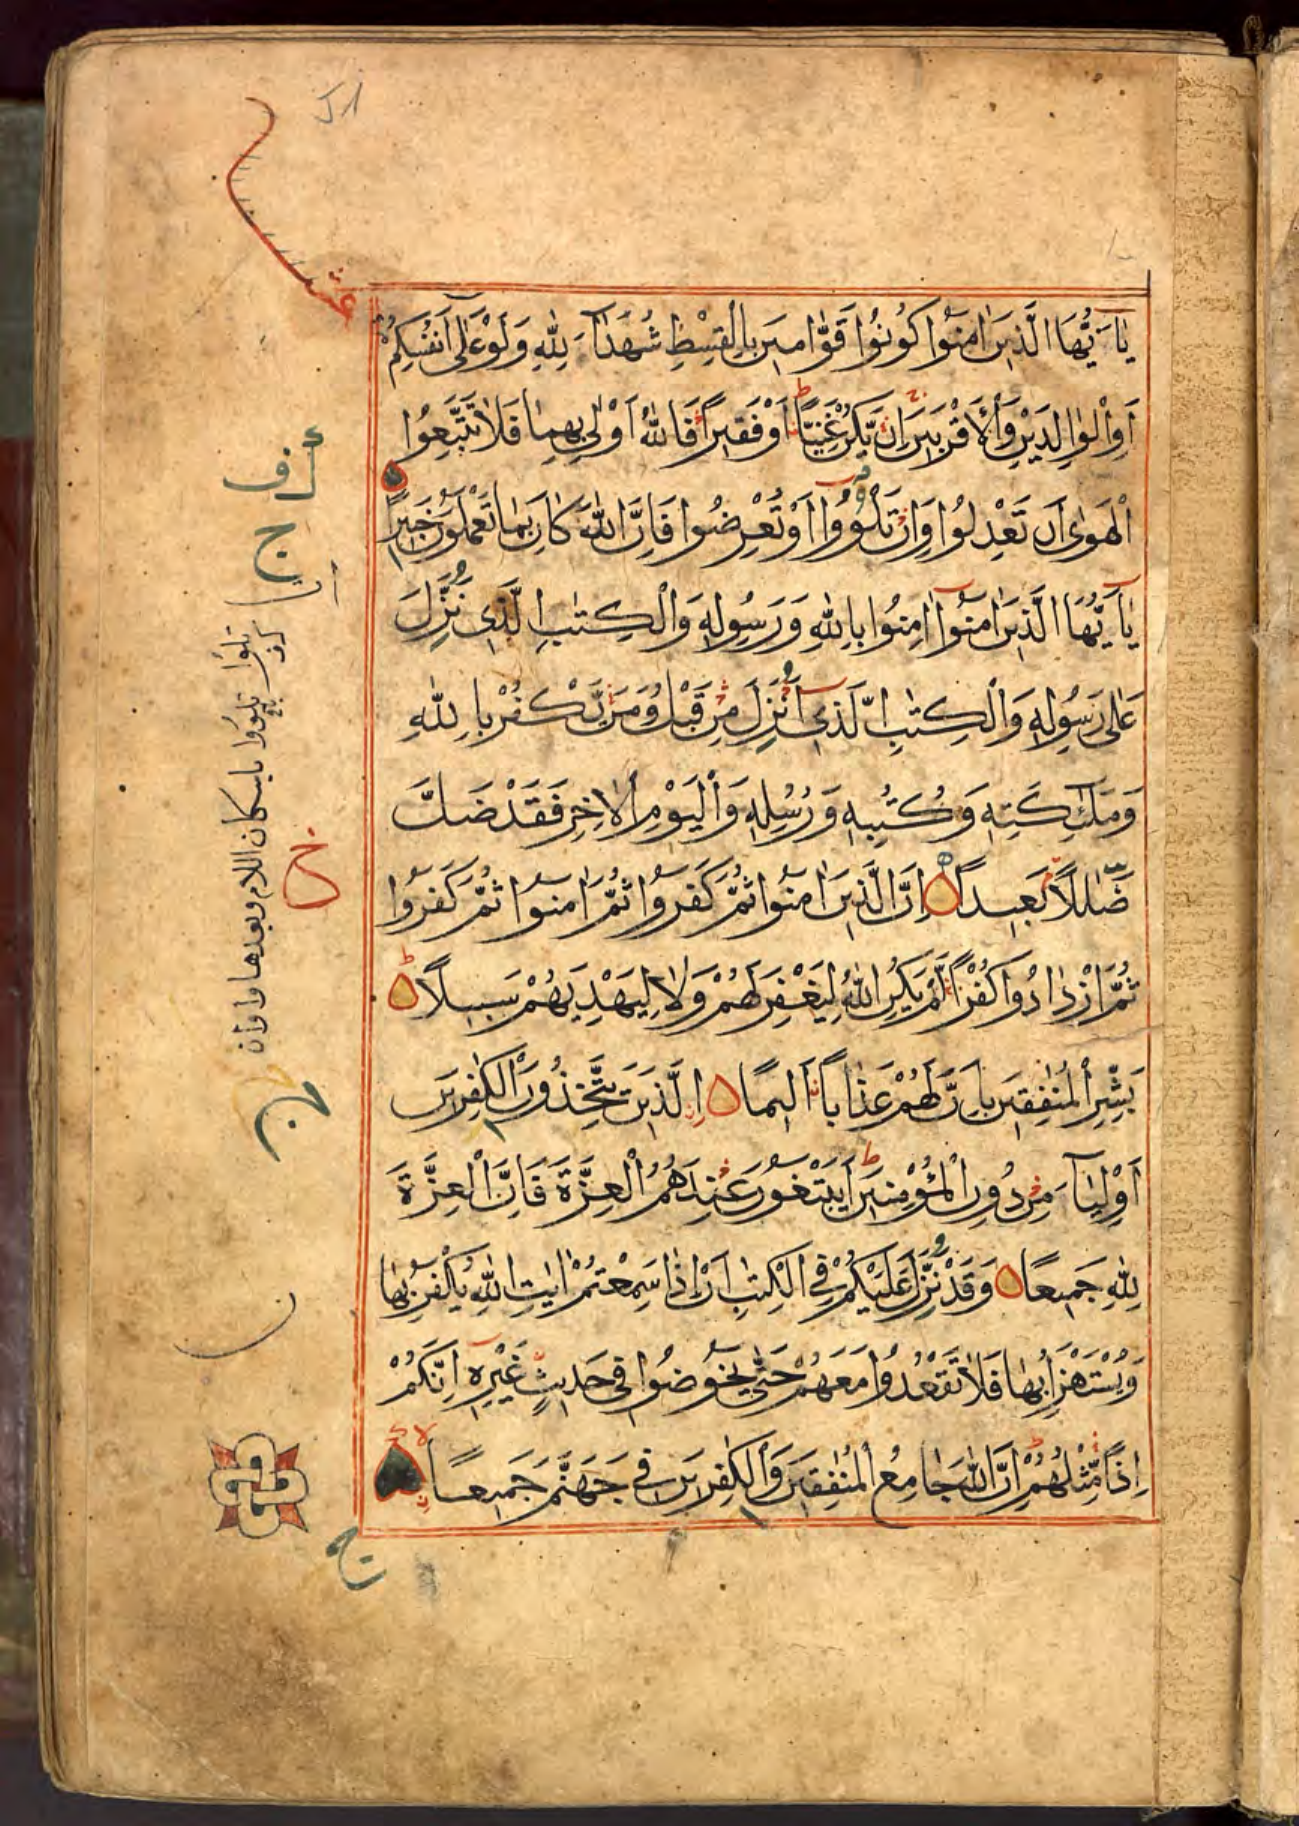 يٰٓاَيُّهَا الَّذِينَ اٰمَنُوا كُونُوا قَوّٰامِينَ بِالْقِسْطِ شُهَدَآءَ لِلّٰهِ وَلَوْ عَلٰى اَنْفُسِكُمْ
اَوِ الْوٰالِدَيْنِ وَالْاَقْرَبِينَ اِنْ يَّكُنْ غَنِيًّا اَوْ فَقِيرًا فَاللّٰهُ اَوْلٰى بِهِمٰا فَلٰا تَتَّبِعُوا
الْهَوٰى اَنْ تَعْدِلُوا وَاِنْ تَلْوُوا اَوْ تُعْرِضُوا فَاِنَّ اللّٰهَ كٰانَ بِمٰا تَعْمَلُونَ خَبِيرًا
يٰٓاَيُّهَا الَّذِينَ اٰمَنُوا اٰمِنُوا بِاللّٰهِ وَرَسُولِهِ وَالْكِتٰبِ الَّذِى نُزِّلَ
عَلٰى رَسُولِهِ وَالْكِتٰبِ الَّذِى اُنْزِلَ مِنْ قَبْلُ وَمَنْ يَّكْفُرْ بِاللّٰهِ
وَمَلٰٓئِكَتِهِ وَكُتُبِهِ وَرُسُلِهِ وَالْيَوْمِ الْاٰخِرِ فَقَدْ ضَلَّ
ضَلٰلًا بَعِيدًا اِنَّ الَّذِينَ اٰمَنُوا ثُمَّ كَفَرُوا ثُمَّ اٰمَنُوا ثُمَّ كَفَرُوا
ثُمَّ ازْدٰادُوا كُفْرًا لَّمْ يَكُنِ اللّٰهُ لِيَغْفِرَ لَهُمْ وَلٰا لِيَهْدِيَهُمْ سَبِيلًا
بَشِّرِ الْمُنٰفِقِينَ بِاَنَّ لَهُمْ عَذٰابًا اَلِيمًا اِلَّذِينَ يَتَّخِذُونَ الْكٰفِرِينَ
اَوْلِيٰٓاءَ مِنْ دُونِ الْمُؤْمِنِينَ اَيَبْتَغُونَ عِنْدَهُمُ الْعِزَّةَ فَاِنَّ الْعِزَّةَ
لِلّٰهِ جَمِيعًا وَقَدْ نُزِّلَ عَلَيْكُمْ فِى الْكِتٰبِ اَنْ اِذٰا سَمِعْتُمْ اٰيٰتِ اللّٰهِ يُكْفَرُ بِهٰا
وَيُسْتَهْزَاُ بِهٰا فَلٰا تَقْعُدُوا مَعَهُمْ حَتّٰى يَخُوضُوا فِى حَدِيثٍ غَيْرِهِ اِنَّكُمْ
اِذًا مِّثْلُهُمْ اِنَّ اللّٰهَ جٰامِعُ الْمُنٰفِقِينَ وَالْكٰفِرِينَ فِى جَهَنَّمَ جَمِيعًا
عشر
تلوا
تلووا باسكان اللام وبعدها واوان